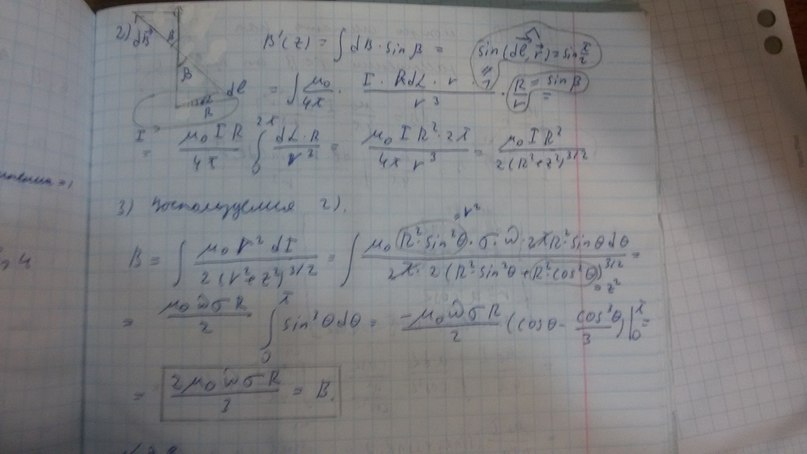 2) dB β β dl R I
B'(z) = ∫ dB · sin β = sin(dl, r) = sin π/2
= ∫ μ₀/4π · I · Rdα · r / r³ · R/r = sin β =
= μ₀ I R / 4π ∫₀^2π dα · R / r² = μ₀ I R² · 2π / 4π r³ = μ₀ I R² / 2(R²+z²)^3/2
3) Воспользуемся 2).
B = ∫ μ₀ r² dI / 2(r²+z²)^3/2 = ∫ μ₀ (R² · sin²θ) · σ · ω · 2πR² · sinθ dθ / 2π · 2 (R² sin²θ + R² · cos²θ)^3/2 = = r² = z²
= μ₀ ω σ R / 2 ∫₀^π sin³θ dθ = -μ₀ ω σ R / 2 (cosθ - cos³θ / 3) |₀^π =
= 2μ₀ ω σ R / 3 = B.